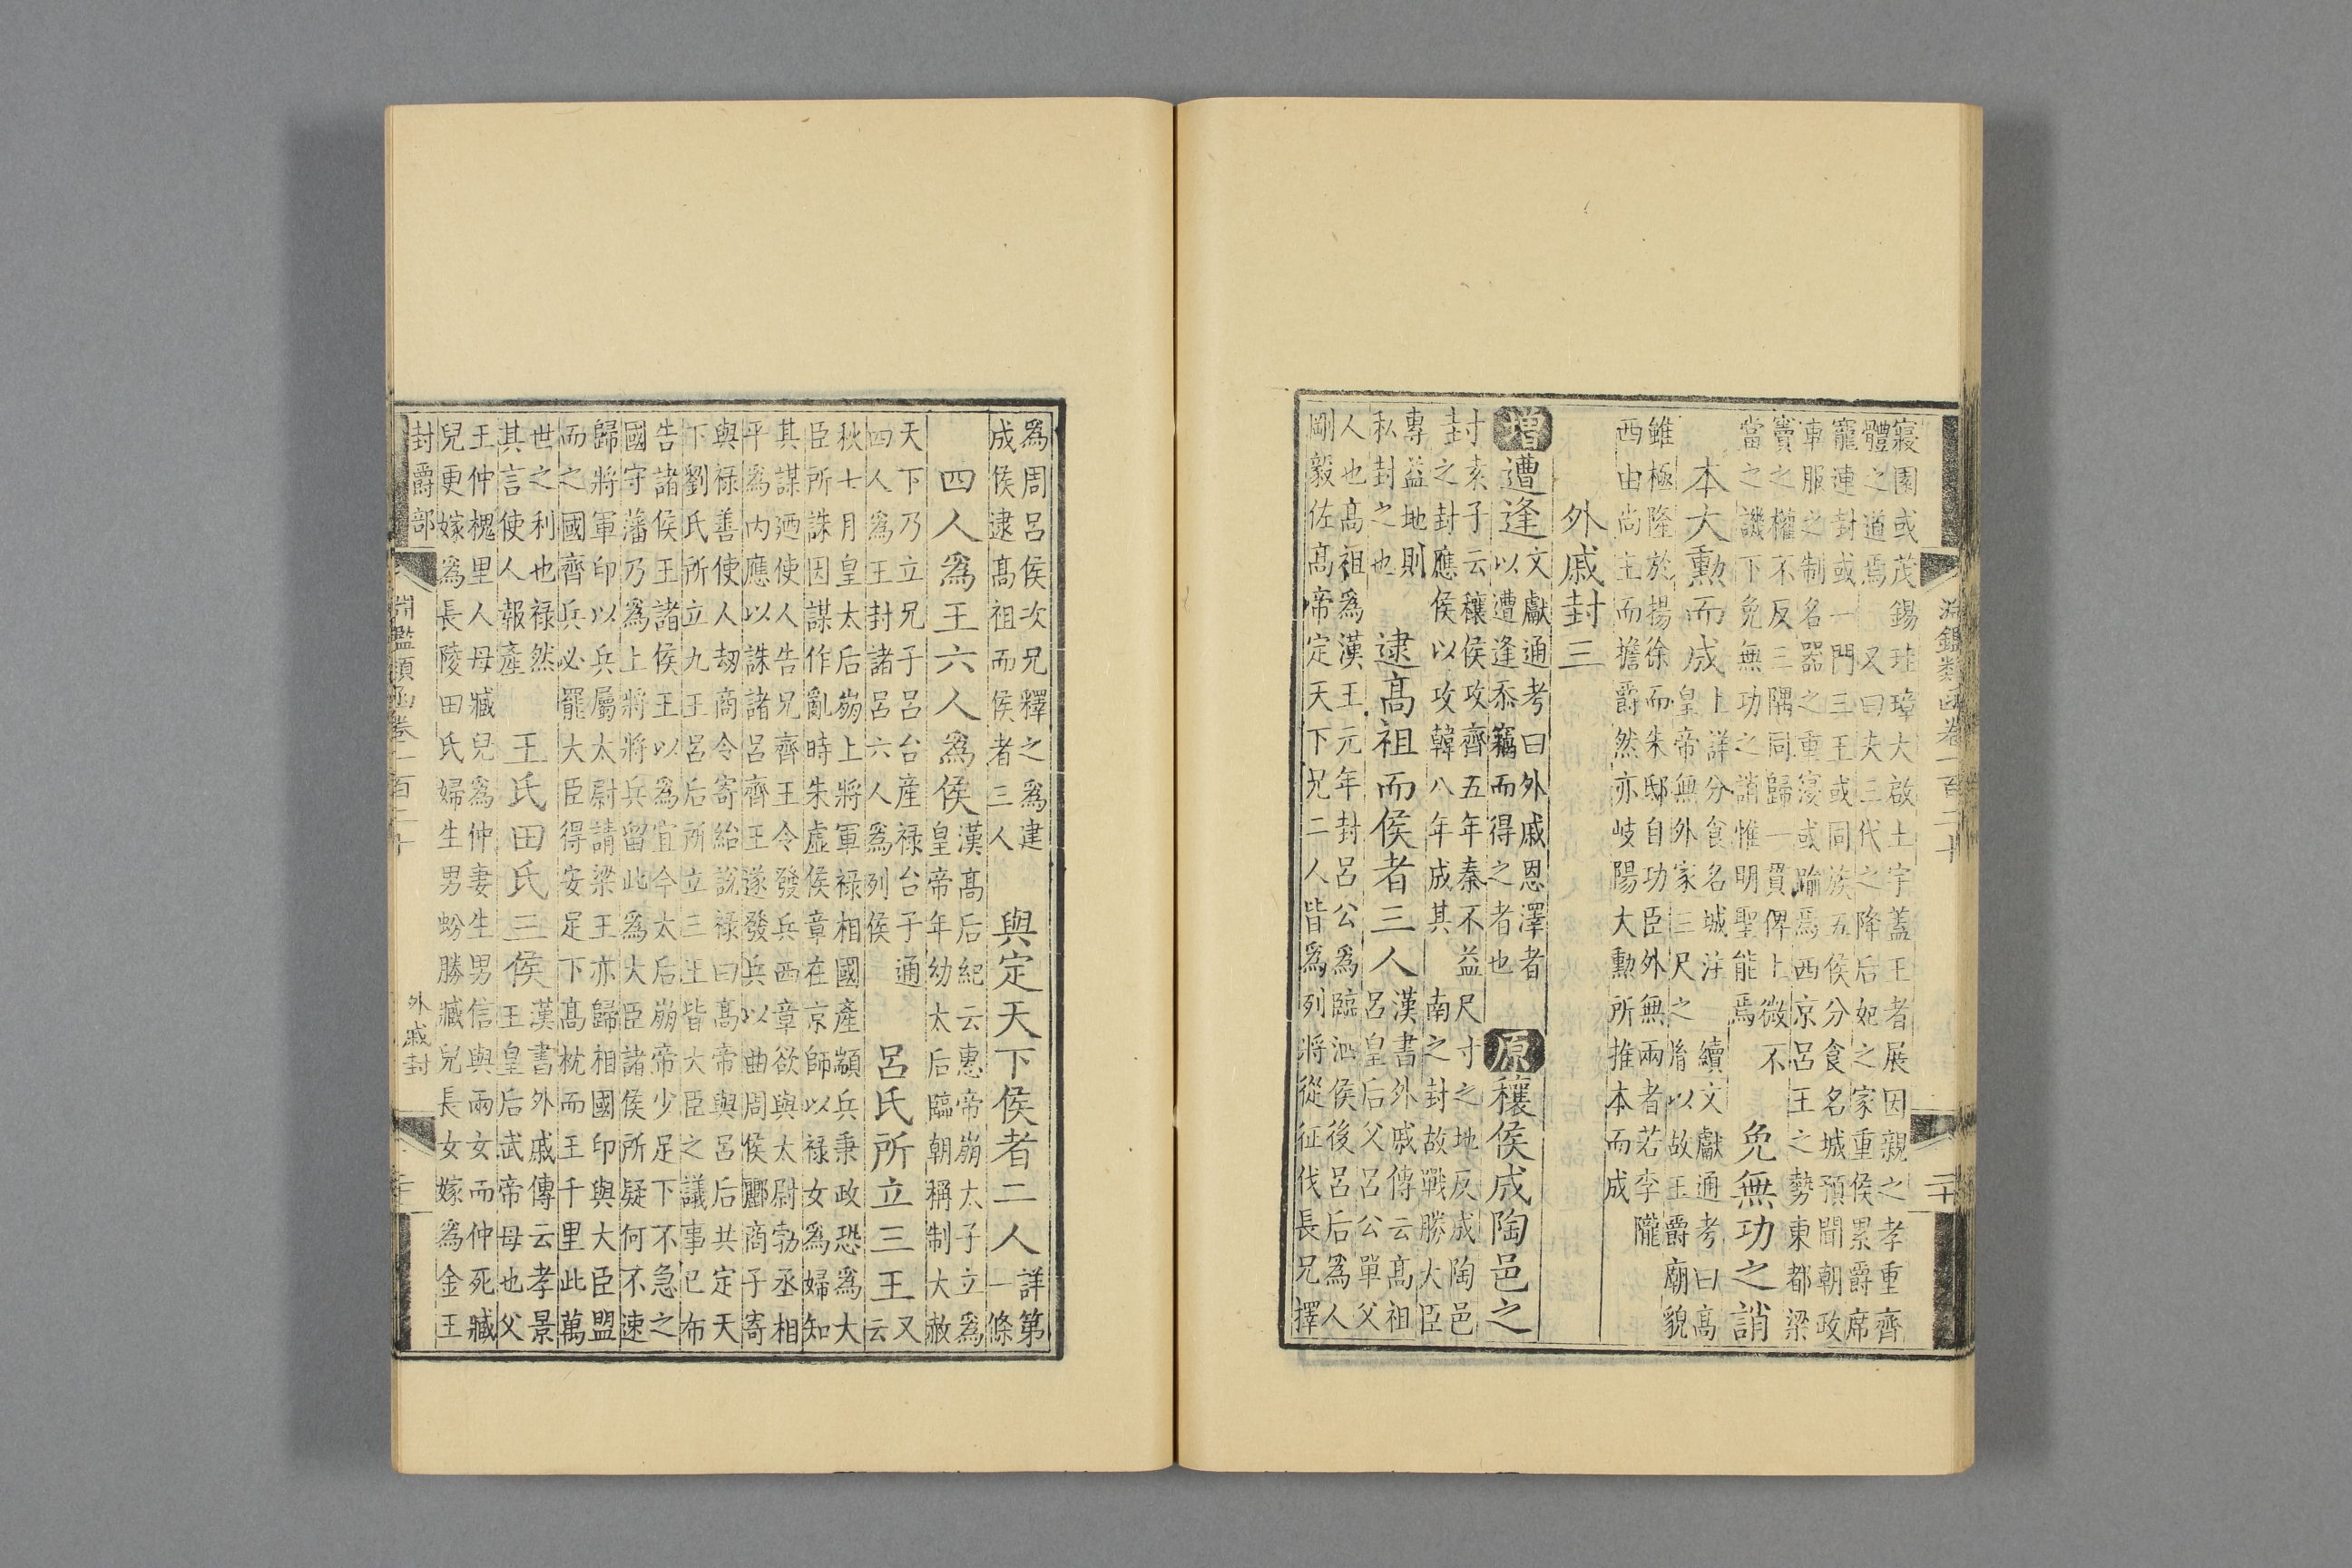 淵鑑類函卷一百二十
二十
寢園或茂錫珪璋大啟土宇蓋王者展因親之孝重齊
體之道焉 又曰夫三代之降后妃之家重侯累爵席
寵連封或一門三王或同族五侯分食名城預聞朝政
車服之制名器之重寖或踰焉西京呂王之勢東都梁
竇之權不反三隅同歸一貫俾上微不
當之譏下免無功之誚惟明聖能焉
免無功之誚
本大勲而成
上詳分食名城注 續文獻通考曰髙
皇帝無外家三尺之胄以故王爵廟貌
雖極隆於揚徐而朱邸自功臣外無兩者若李隴
西由尚主而擔爵然亦岐陽大勲所推本而成
外戚封三
增遭逢
文獻通考曰外戚恩澤者
以遭逢忝竊而得之者也
原穰侯成陶邑之
封
子云穰侯攻齊五年秦不益尺寸之地反成陶邑
之封應侯以攻韓八年成其南之封故戰勝大臣
專益地則
私封之也
逮髙祖而侯者三人
漢書外戚傳云髙祖
呂皇后父呂公單父
人也髙祖為漢王元年封呂公為臨泗侯後呂后為人
剛毅佐髙帝定天下兄二人皆為列將從征伐長兄擇
為周呂侯次兄釋之為建
成侯逮髙祖而侯者三人
與定天下侯者二人
詳第
一條
四人為王六人為侯
漢髙后紀云惠帝崩太子立為
皇帝年幼太后臨朝稱制大赦
天下乃立兄子呂台產祿台子通
四人為王封諸呂六人為列侯
呂氏所立三王
又
云
秋七月皇太后崩上將軍祿相國產顓兵秉政恐為大
臣所誅因謀作亂時朱虛侯章在京師以祿女為婦知
其謀廼使人告兄齊王令發兵西章欲與太尉勃丞相
平為內應以誅諸呂齊王遂發兵以曲周侯酈商子寄
與祿善使人刼商令寄紿說祿曰髙帝與呂后共定天
下劉氏所立九王呂后所立三王皆大臣之議事已布
告諸侯王諸侯王以為宜今太后崩帝少足下不急之
國守藩乃為上將將兵留此為大臣諸侯所疑何不速
歸將軍印以兵屬太尉請梁王亦歸相國印與大臣盟
而之國齊兵必罷大臣得安足下髙枕而王千里此萬
世之利也祿然
其言使人報產
王氏田氏三侯
漢書外戚傳云孝景
王皇后武帝母也父
王仲槐里人母臧兒為仲妻生男信與兩女而仲死臧
兒更嫁為長陵田氏婦生男蚡勝臧兒長女嫁為金王
封爵部
淵鑑類函卷一百二十
外戚封